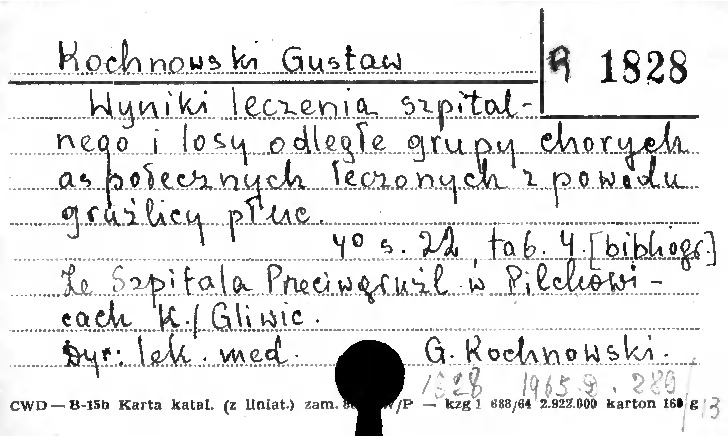 Kochnowski Gustaw
R 1828
Wyniki leczenia szpital-
nego i losy odległe grupy chorych
aspołecznych leczonych z powodu
gruźlicy płuc.
4° s. 22, tab. 4. [bibliogr.]
Ze Szpitala Przeciwgruźl. w Pilchowi-
cach K./Gliwic.
Dyr: lek. med. G. Kochnowski.
1828 1965 D. 280/13
CWD — B-15b Karta katal. (z liniat.) zam. W/P — kzg 1 688/64 2.922.000 karton 160 g